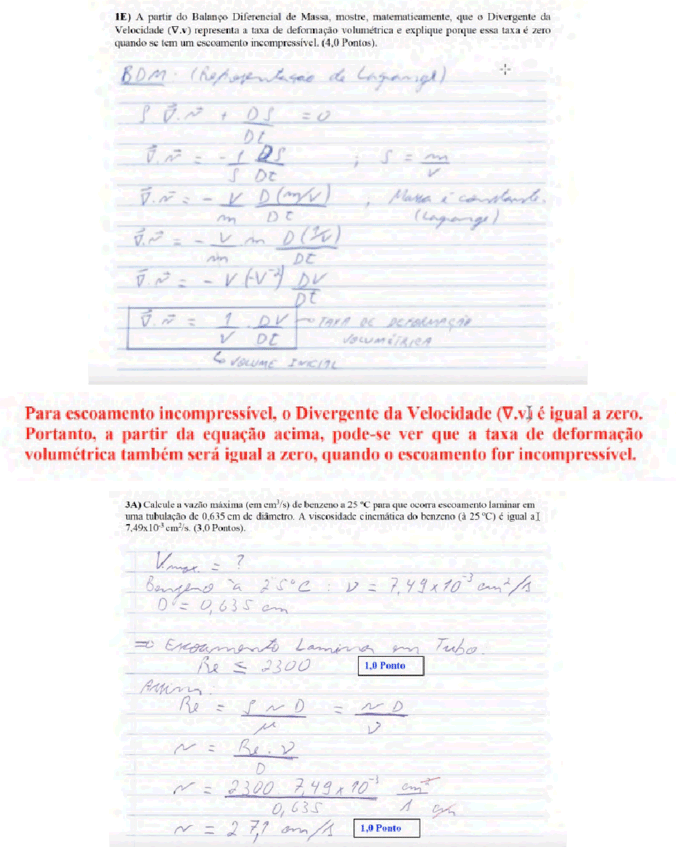 1E) A partir do Balanço Diferencial de Massa, mostre, matematicamente, que o Divergente da
Velocidade (∇.v) representa a taxa de deformação volumétrica e explique porque essa taxa é zero
quando se tem um escoamento incompressível. (4,0 Pontos).
BDM. (Representação de Lagrange)
ρ ∇⃗.v⃗ + Dρ/Dt = 0
∇⃗.v⃗ = - 1/ρ Dρ/Dt ; ρ = m/V
∇⃗.v⃗ = - V/m D(m/V)/Dt ; Massa é constante.
(Lagrange)
∇⃗.v⃗ = - V/m m D(1/V)/Dt
∇⃗.v⃗ = - V (-V⁻²) DV/Dt
∇⃗.v⃗ = 1/V . DV/Dt → TAXA DE DEFORMAÇÃO
VOLUMÉTRICA
↳ VOLUME INICIAL
Para escoamento incompressível, o Divergente da Velocidade (∇.v) é igual a zero.
Portanto, a partir da equação acima, pode-se ver que a taxa de deformação
volumétrica também será igual a zero, quando o escoamento for incompressível.
3A) Calcule a vazão máxima (em cm³/s) de benzeno a 25 ºC para que ocorra escoamento laminar em
uma tubulação de 0,635 cm de diâmetro. A viscosidade cinemática do benzeno (à 25 ºC) é igual a
7,49x10⁻³ cm²/s. (3,0 Pontos).
V̇max. = ?
Benzeno à 25°C : ν = 7,49 x 10⁻³ cm²/s
D = 0,635 cm
⇒ Escoamento Laminar em Tubo.
Re ≤ 2300 1,0 Ponto
Assim:
Re = ρ v D/μ = v D/ν
v = Re . ν/D
v = 2300 7,49 x 10⁻³/0,635 cm²/s cm
v = 27,1 cm/s 1,0 Ponto